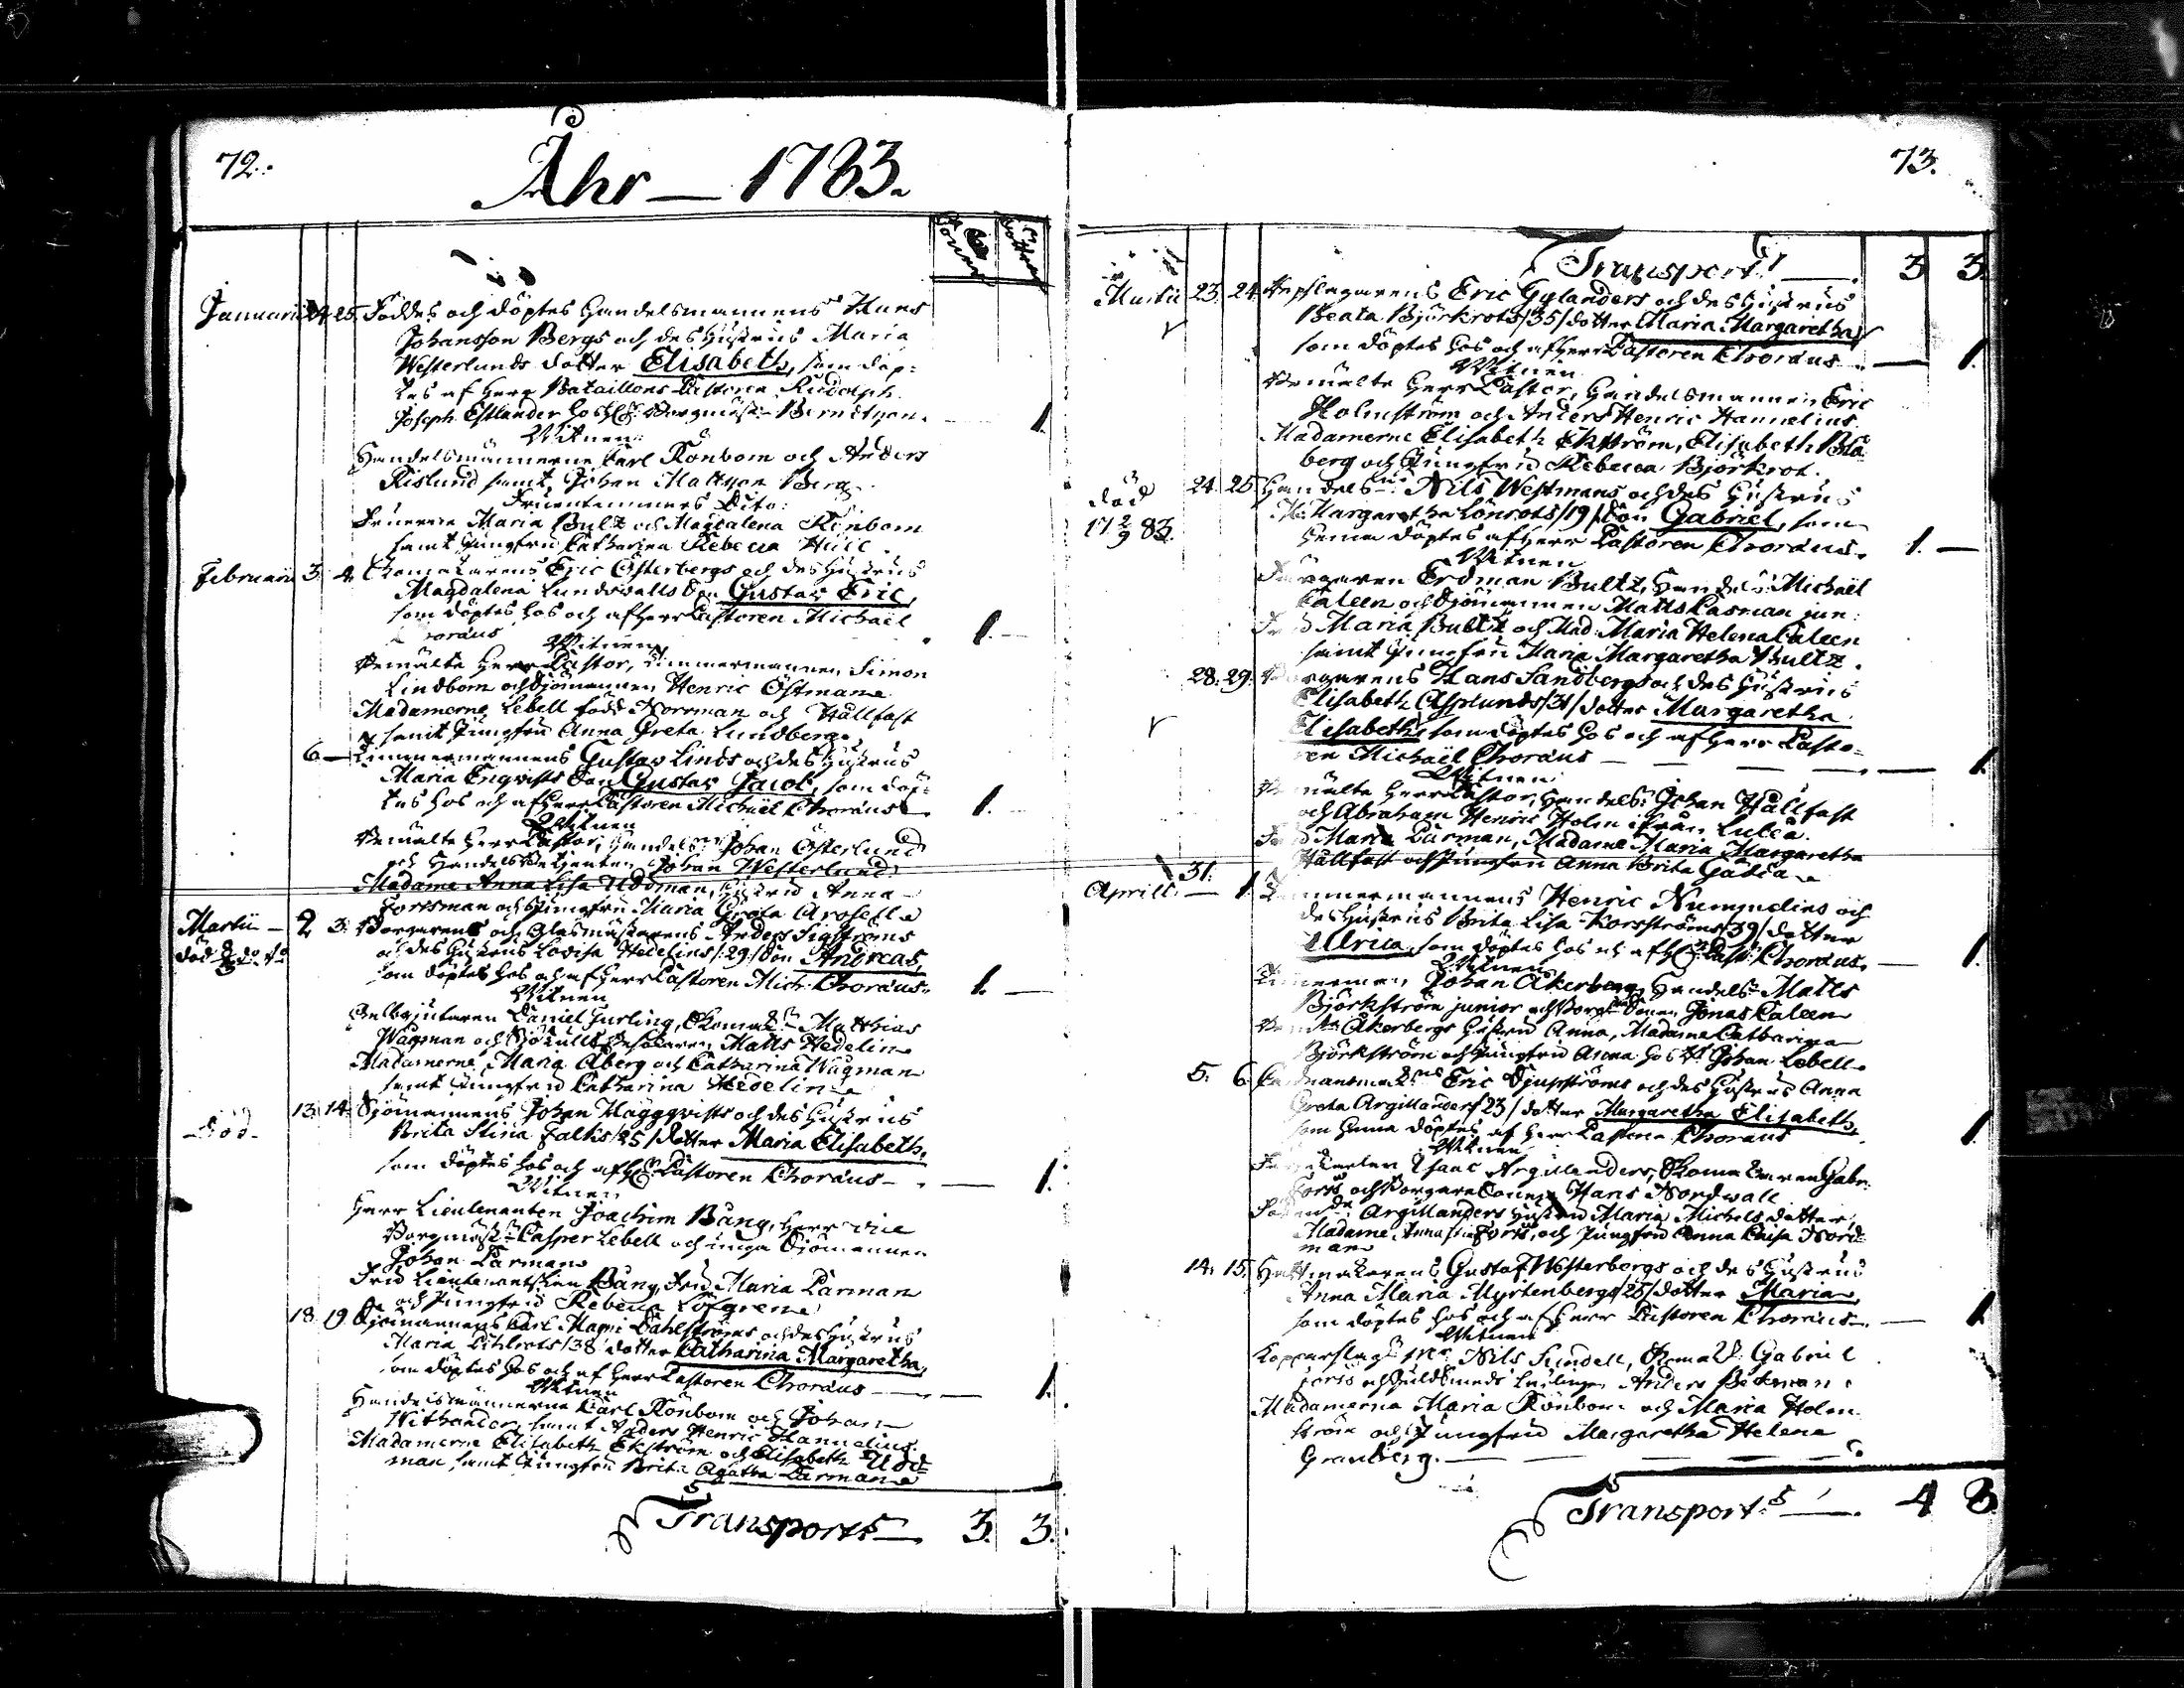 72.
Åhr — 1783.
Söner
Döttrar
Januarii 24. 25. Föddes och döptes Handelsmannens Hans
Johansson Bergs och des Hustrus Maria
Westerlunds dotter Elisabeth, som döp=
tes af Herr Bataillons Pastoren Rudolph
Joseph Estlander hos H: Borgmäst: Bernitzon. 1.
Witnen
Handelsmännerne Carl Rönbom och Anders
Kislund samt Johan Mattson Berg
Fruentimmers Dito:
Fruerne Maria Bultz och Magdalena Rönbom
samt Jungfru Catharina Rebecca Hull.
Februarii 3. 4. Skomakarens Eric Österbergs och des Hustrus
Magdalena Lundwalls Son Gustav Eric,
som döptes hos och af Herr Pastoren Michaël
Choraeus 1. —
Witnen
Bemälte Herr Pastor, Timmermannen Simon
Lindbom och Sjömannen Henric Östman
Madamerne Lebell född Norrman och Hällfast
samt Jungfru Anna Greta Lundberg.
6 — Timmermannens Gustav Linds och des Hustrus
Maria Enqvists Son Gustav Jacob, som döp=
tes hos och af Herr Pastoren Michaël Choraeus 1. —
Witnen
Bemälte Herr Pastor, Handels: Johan Österlund
och Handels Betjenten Johan Westerlund
Madame Anna Lisa Uddman, Hustru Anna
Forsman och Jungfru Maria Greta Aroselle
Martii — 2 3. Borgarens och Glasmästarens Anders Sigströms
död
och des Hustrus Lovisa Hedelins /29/ Son Andreas,
som döptes hos och af Herr Pastoren Mich: Choraeus. 1. —
Witnen
Gelbgjutaren Daniel Gurling, Skomak: Matthias
Wägman och Matts Hedelin
Madamerne Maria Åberg och Catharina Wägman
samt Jungfru Catharina Hedelin
död
13. 14. Sjömannens Johan Häggqvists och des Hustrus
Brita Stina Falks /25/ dotter Maria Elisabeth,
som döptes hos och af H: Pastoren Choraeus — 1.
Witnen
Herr Lieutenanten Joachim Bång, Herr vice
Borgmäst: Casper Lebell och unga Sjömannen
Johan Carman
Fru Lieutenantskan Bång, Fru Maria Carman
och Jungfru Rebecca Löfgren
18. 19. Sjömannens Carl Magni Dahlströms och des Hustrus
Maria Lihlrots /38/ dotter Catharina Margaretha,
som döptes hos och af Herr Pastoren Choraeus — 1.
Witnen
Handelsmännerne Carl Rönbom och Johan
Withander, samt Anders Henric Hannelius.
Madamerne Elisabeth Ekström och Elisabeth Udd=
man samt Jungfru Brita Agatha Carman
Transport 3. 3.
73.
Transport 3 3.
Martii 23. 24. Repslagarens Eric Gylanders och des Hustrus
Beata Björkrots /35/ dotter Maria Margaretha
som döptes hos och af Herr Pastoren Choraeus — 1.
Witnen
Bemälte Herr Pastor, Handelsmannen Eric
Holmström och Anders Henric Hannelius.
Madamerne Elisabeth Ekström, Elisabeth Blå
berg och Jungfru Rebecca Björkrot.
död
17 2/9 83.
24. 25. Handels: Nils Westmans och des Hustrus
Margaretha Lönrots /19/ Son Gabriel, som
hema döptes af Herr Pastoren Choraeus. 1. —
Witnen
Färgaren Erdman Bultz, Handels: Michaël
Caleen och Sjömannen Matts Carman jun:
Fru Maria Bultz och Mad: Maria Helena Caleen
samt Jungfru Maria Margaretha Bultz.
28. 29. Borgarens Hans Sandbergs och des Hustrus
Elisabeth Asplunds /31/ dotter Margaretha
Elisabeth, som döptes hos och af Herr Pasto=
ren Michaël Choraeus — — — 1.
Witnen
Bemälte Herr Pastor, Handels: Johan Hällfast
och Abraham Henric Holm ifrån Luleå.
Fru Maria Carman, Madame Maria Margaretha
Hällfast och Jungfru Anna Brita Gadia
31.
Aprill. — 1. Timmermannens Henric Nummelins och
des Hustrus Brita Lisa Korsströms /39/ dotter
Ulrica, som döptes hos och af H: Past: Choraeus. — 1.
Witnen
Timmerman Johan Åkerberg, Handels: Matts
Björkström junior och Borgare Sonen Jonas Caleen
Åkerbergs Hustru Anna, Madame Catharina
Björkström och Jungfru Anna hos Johan Lebell
5. 6. Eric Djupströms och des Hustrus Anna
Greta Argillanders /23/ dotter Margaretha Elisabeth,
som hema döptes af Herr Pastoren Choraeus 1.
Witnen
Isaac Argillanders, Skomakaren Gabr:
Forss och Borgare Sonen Hans Nordwall
Argillanders Hustru Maria Michels dotter,
Madame Anna Forss, och Jungfru Anna Caisa Nord=
man
14. 15. Hattmakarens Gustaf Westerbergs och des Hustrus
Anna Maria Myrtenbergs /25/ dotter Maria,
som döptes hos och af Herr Pastoren Choraeus — 1.
Witnen
Kopparslag: Nils Sundell, Skomak: Gabriel
Forss och Guldsmeds Lärlingen Anders Beckman
Madamerna Maria Rönbom och Maria Holm
ström och Jungfru Margaretha Helena
Granberg. — — —
Transport 4 8.